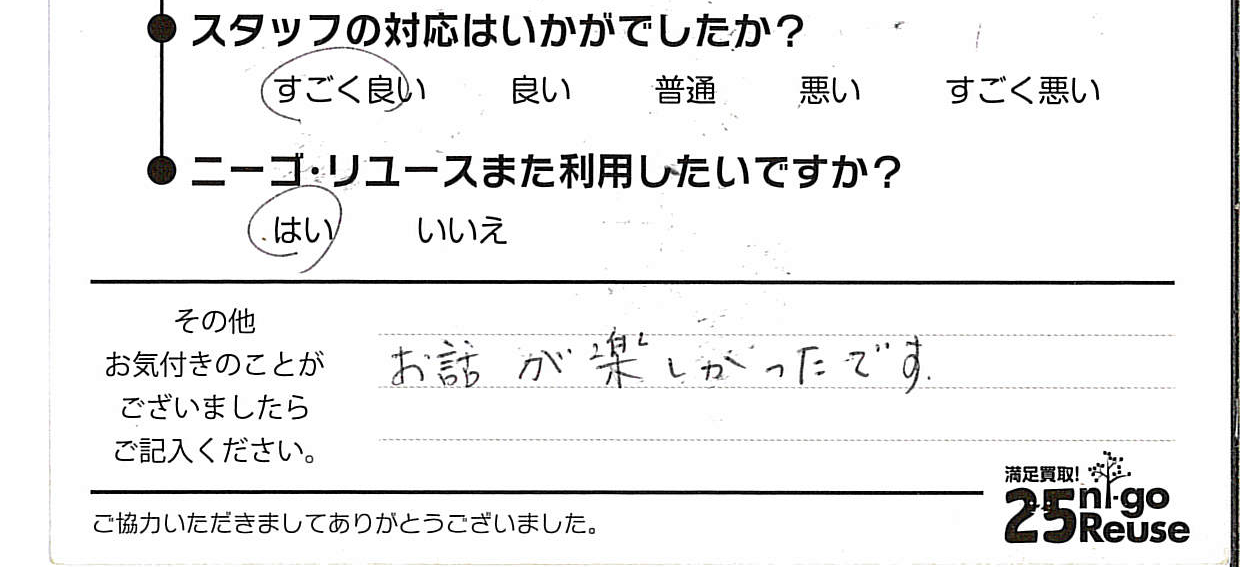 スタッフの対応はいかがでしたか？
すごく良い 良い 普通 悪い すごく悪い
ニーゴ・リユースまた利用したいですか？
はい いいえ
その他
お気付きのことが
ございましたら
ご記入ください。
お話が楽しかったです.
満足買取!
25 ni-go
Reuse
ご協力いただきましてありがとうございました。